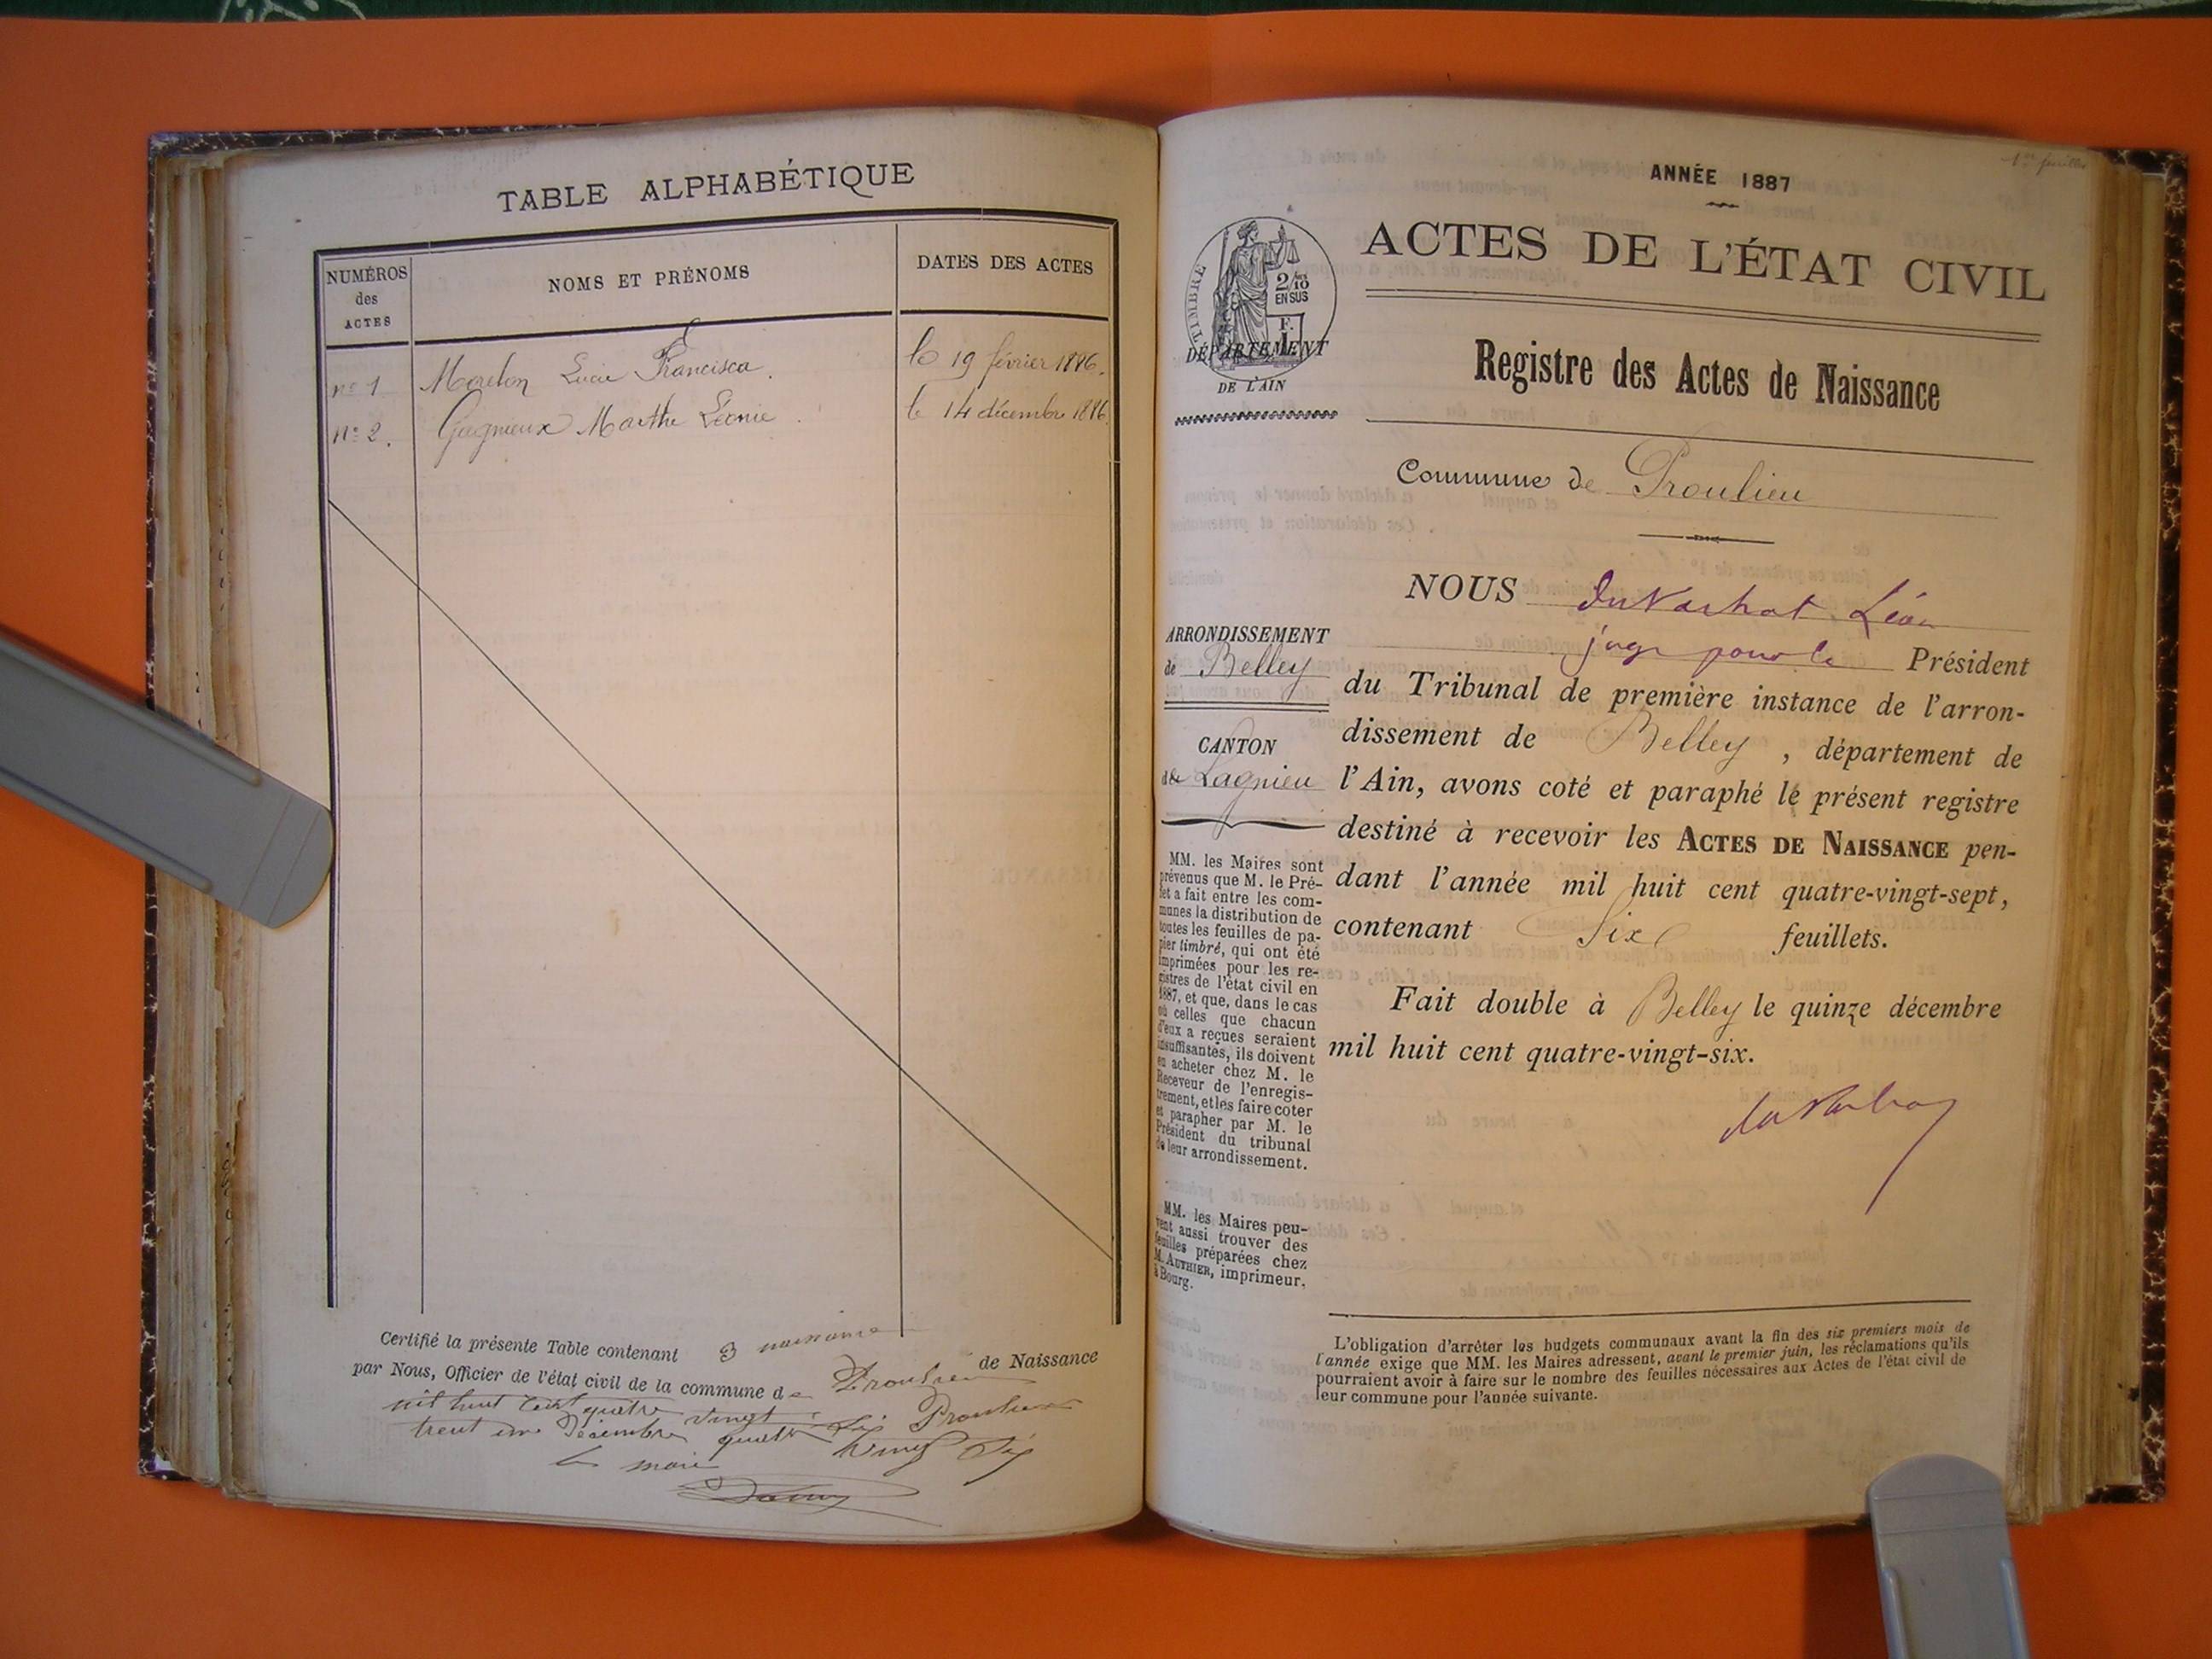 TABLE ALPHABÉTIQUE
NUMÉROS
des
ACTES
NOMS ET PRÉNOMS
DATES DES ACTES
nº 1 Morelon Lucie Francisca. le 19 février 1886.
nº 2. Gagneux Marthe Léonie. le 14 décembre 1886.
Certifié la présente Table contenant 3 naissance de Naissance
par Nous, Officier de l'état civil de la commune de Proulieu
mil huit cent quatre vingt Six Proulieu
trent un Décembre
le maire
1er feuillet
ANNÉE 1887
ACTES DE L'ÉTAT CIVIL
TIMBRE
2/10
EN SUS
F.
1
DÉPARTEMENT
DE L'AIN
Registre des Actes de Naissance
Commune de Proulieu
NOUS Léon
juge pour le Président
du Tribunal de première instance de l'arron-
dissement de Belley, département de
l'Ain, avons coté et paraphé le présent registre
destiné à recevoir les ACTES DE NAISSANCE pen-
dant l'année mil huit cent quatre-vingt-sept,
contenant Six feuillets.
Fait double à Belley le quinze décembre
mil huit cent quatre-vingt-six.
ARRONDISSEMENT
de Belley
CANTON
de Lagnieu
MM. les Maires sont
prévenus que M. le Pré-
fet a fait entre les com-
munes la distribution de
toutes les feuilles de pa-
pier timbré, qui ont été
imprimées pour les re-
gistres de l'état civil en
1887, et que, dans le cas
où celles que chacun
d'eux a reçues seraient
insuffisantes, ils doivent
en acheter chez M. le
Receveur de l'enregis-
trement, et les faire coter
et parapher par M. le
Président du tribunal
de leur arrondissement.
MM. les Maires peu-
vent aussi trouver des
feuilles préparées chez
M. AUTHIER, imprimeur,
à Bourg.
L'obligation d'arrêter les budgets communaux avant la fin des six premiers mois de
l'année exige que MM. les Maires adressent, avant le premier juin, les réclamations qu'ils
pourraient avoir à faire sur le nombre des feuilles nécessaires aux Actes de l'état civil de
leur commune pour l'année suivante.